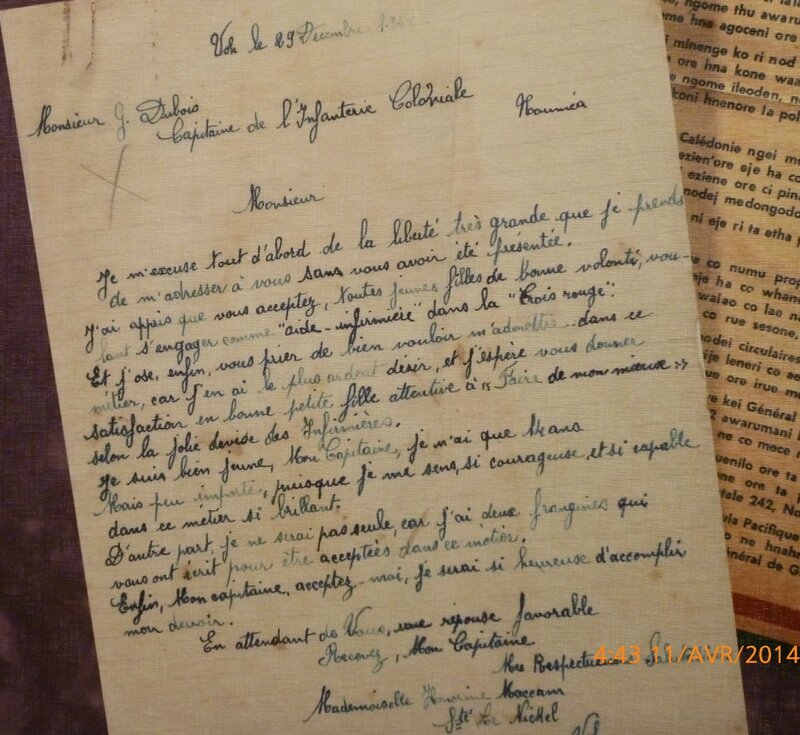 Voh le 29 Décembre 194
Monsieur G. Dubois
Capitaine de l'Infanterie Coloniale
Nouméa
Monsieur
Je m'excuse tout d'abord de la liberté très grande que je prends
de m'adresser à vous sans vous avoir été présentée.
J'ai appris que vous acceptez, toutes jeunes filles de bonne volonté, vou-
lant s'engager comme "aide-infirmière" dans la "Croix rouge".
Et j'ose, enfin, vous prier de bien vouloir m'admettre dans ce
métier, car j'en ai le plus ardent désir, et j'espère vous donner
satisfaction en bonne petite fille attentive à "Faire de mon mieux"
selon la jolie devise des Infirmières.
Je suis bien jeune, Mon Capitaine, je n'ai que 14 ans
Mais peu importe, puisque je me sens, si courageuse et si capable
dans ce métier si brillant.
D'autre part, je ne serai pas seule, car j'ai deux frangines qui
vous ont écrit pour être acceptées dans ce métier.
Enfin, Mon capitaine, acceptez-moi, je serai si heureuse d'accomplir
mon devoir.
En attendant de Vous, une réponse favorable
Recevez, Mon Capitaine
Mes Respectueuses
Mademoiselle Honorine Maccam
Sté Le Nickel
ngome thu awarum
me hna agoceni ore
minenge ko ri nod
ore hna kone waa
ngome ileoden, m
koni hnenore la pol
Calédonie ngei me
ezien'ore eje ha co
eziene ore ci pina
nodej medongodo
ni eje ri ta etha
co numu prop
eje ha co whan
waiao co lae na
co rue sesone,
nodei circulaires
ije ileneri co ae
ue orue irue me
re kei Général
2 awarumani
ne co mece
uenilo ore ta
ne ore ta
tale 242, No
via Pacifique
o ne hnahn
énéral de G
4:43 11/AVR/2014